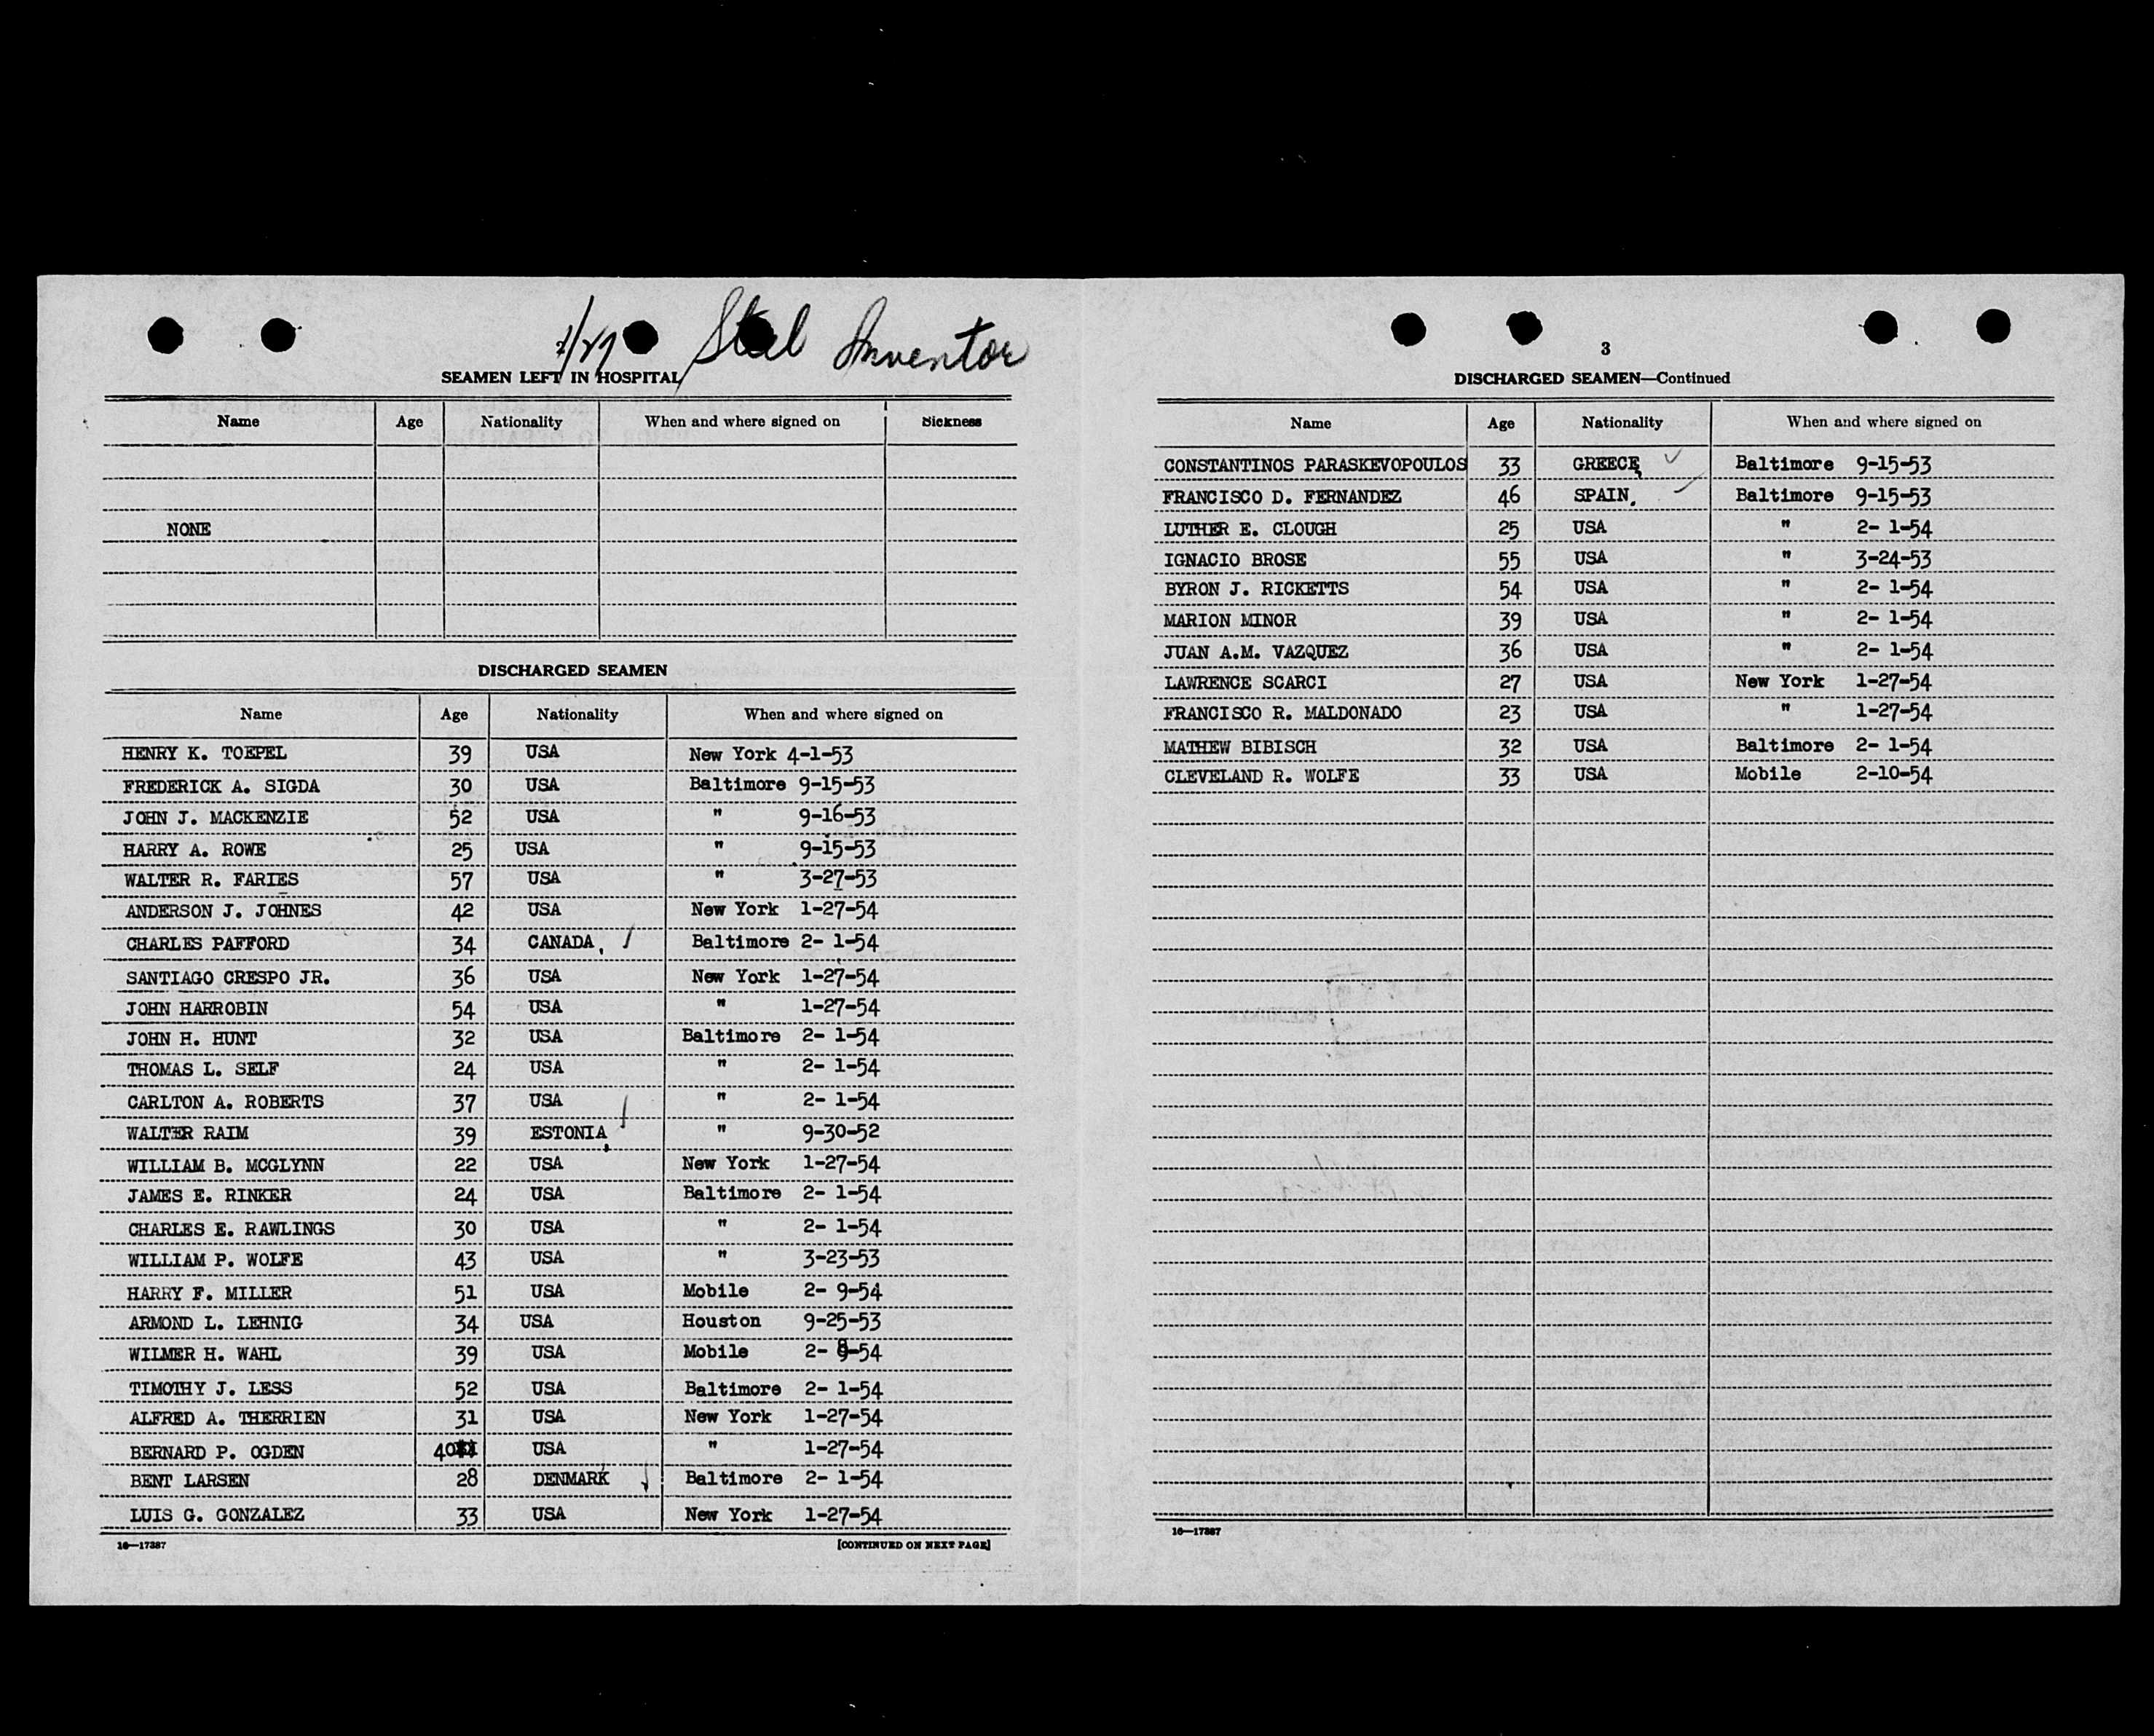 Steel Inventor
SEAMEN LEFT IN HOSPITAL
Name Age Nationality When and where signed on Sickness
NONE
DISCHARGED SEAMEN
Name Age Nationality When and where signed on
HENRY K. TOEPEL 39 USA New York 4-1-53
FREDERICK A. SIGDA 30 USA Baltimore 9-15-53
JOHN J. MACKENZIE 52 USA " 9-16-53
HARRY A. ROWE 25 USA " 9-15-53
WALTER R. FARIES 57 USA " 3-27-53
ANDERSON J. JOHNES 42 USA New York 1-27-54
CHARLES PAFFORD 34 CANADA, Baltimore 2- 1-54
SANTIAGO CRESPO JR. 36 USA New York 1-27-54
JOHN HARROBIN 54 USA " 1-27-54
JOHN H. HUNT 32 USA Baltimore 2- 1-54
THOMAS L. SELF 24 USA " 2- 1-54
CARLTON A. ROBERTS 37 USA " 2- 1-54
WALTER RAIM 39 ESTONIA, " 9-30-52
WILLIAM B. MCGLYNN 22 USA New York 1-27-54
JAMES E. RINKER 24 USA Baltimore 2- 1-54
CHARLES E. RAWLINGS 30 USA " 2- 1-54
WILLIAM P. WOLFE 43 USA " 3-23-53
HARRY F. MILLER 51 USA Mobile 2- 9-54
ARMOND L. LEHNIG 34 USA Houston 9-25-53
WILMER H. WAHL 39 USA Mobile 2- -54
TIMOTHY J. LESS 52 USA Baltimore 2- 1-54
ALFRED A. THERRIEN 31 USA New York 1-27-54
BERNARD P. OGDEN 40 USA " 1-27-54
BENT LARSEN 28 DENMARK Baltimore 2- 1-54
LUIS G. GONZALEZ 33 USA New York 1-27-54
16—17387 [CONTINUED ON NEXT PAGE]
3
DISCHARGED SEAMEN—Continued
Name Age Nationality When and where signed on
CONSTANTINOS PARASKEVOPOULOS 33 GREECE, Baltimore 9-15-53
FRANCISCO D. FERNANDEZ 46 SPAIN, Baltimore 9-15-53
LUTHER E. CLOUGH 25 USA " 2- 1-54
IGNACIO BROSE 55 USA " 3-24-53
BYRON J. RICKETTS 54 USA " 2- 1-54
MARION MINOR 39 USA " 2- 1-54
JUAN A.M. VAZQUEZ 36 USA " 2- 1-54
LAWRENCE SCARCI 27 USA New York 1-27-54
FRANCISCO R. MALDONADO 23 USA " 1-27-54
MATHEW BIBISCH 32 USA Baltimore 2- 1-54
CLEVELAND R. WOLFE 33 USA Mobile 2-10-54
16—17387